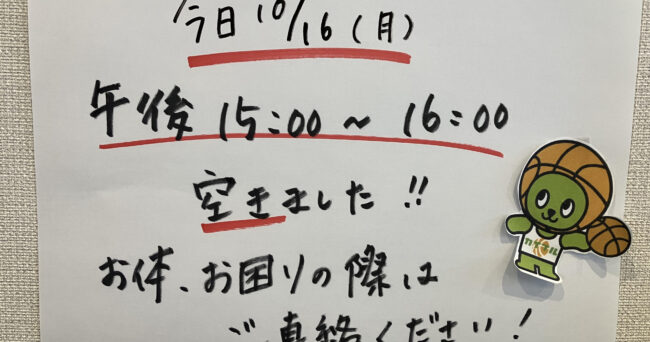 今日 10/16 (月)
午後 15:00 ~ 16:00
空きました!!
お体、お困りの際は
ご連絡ください!